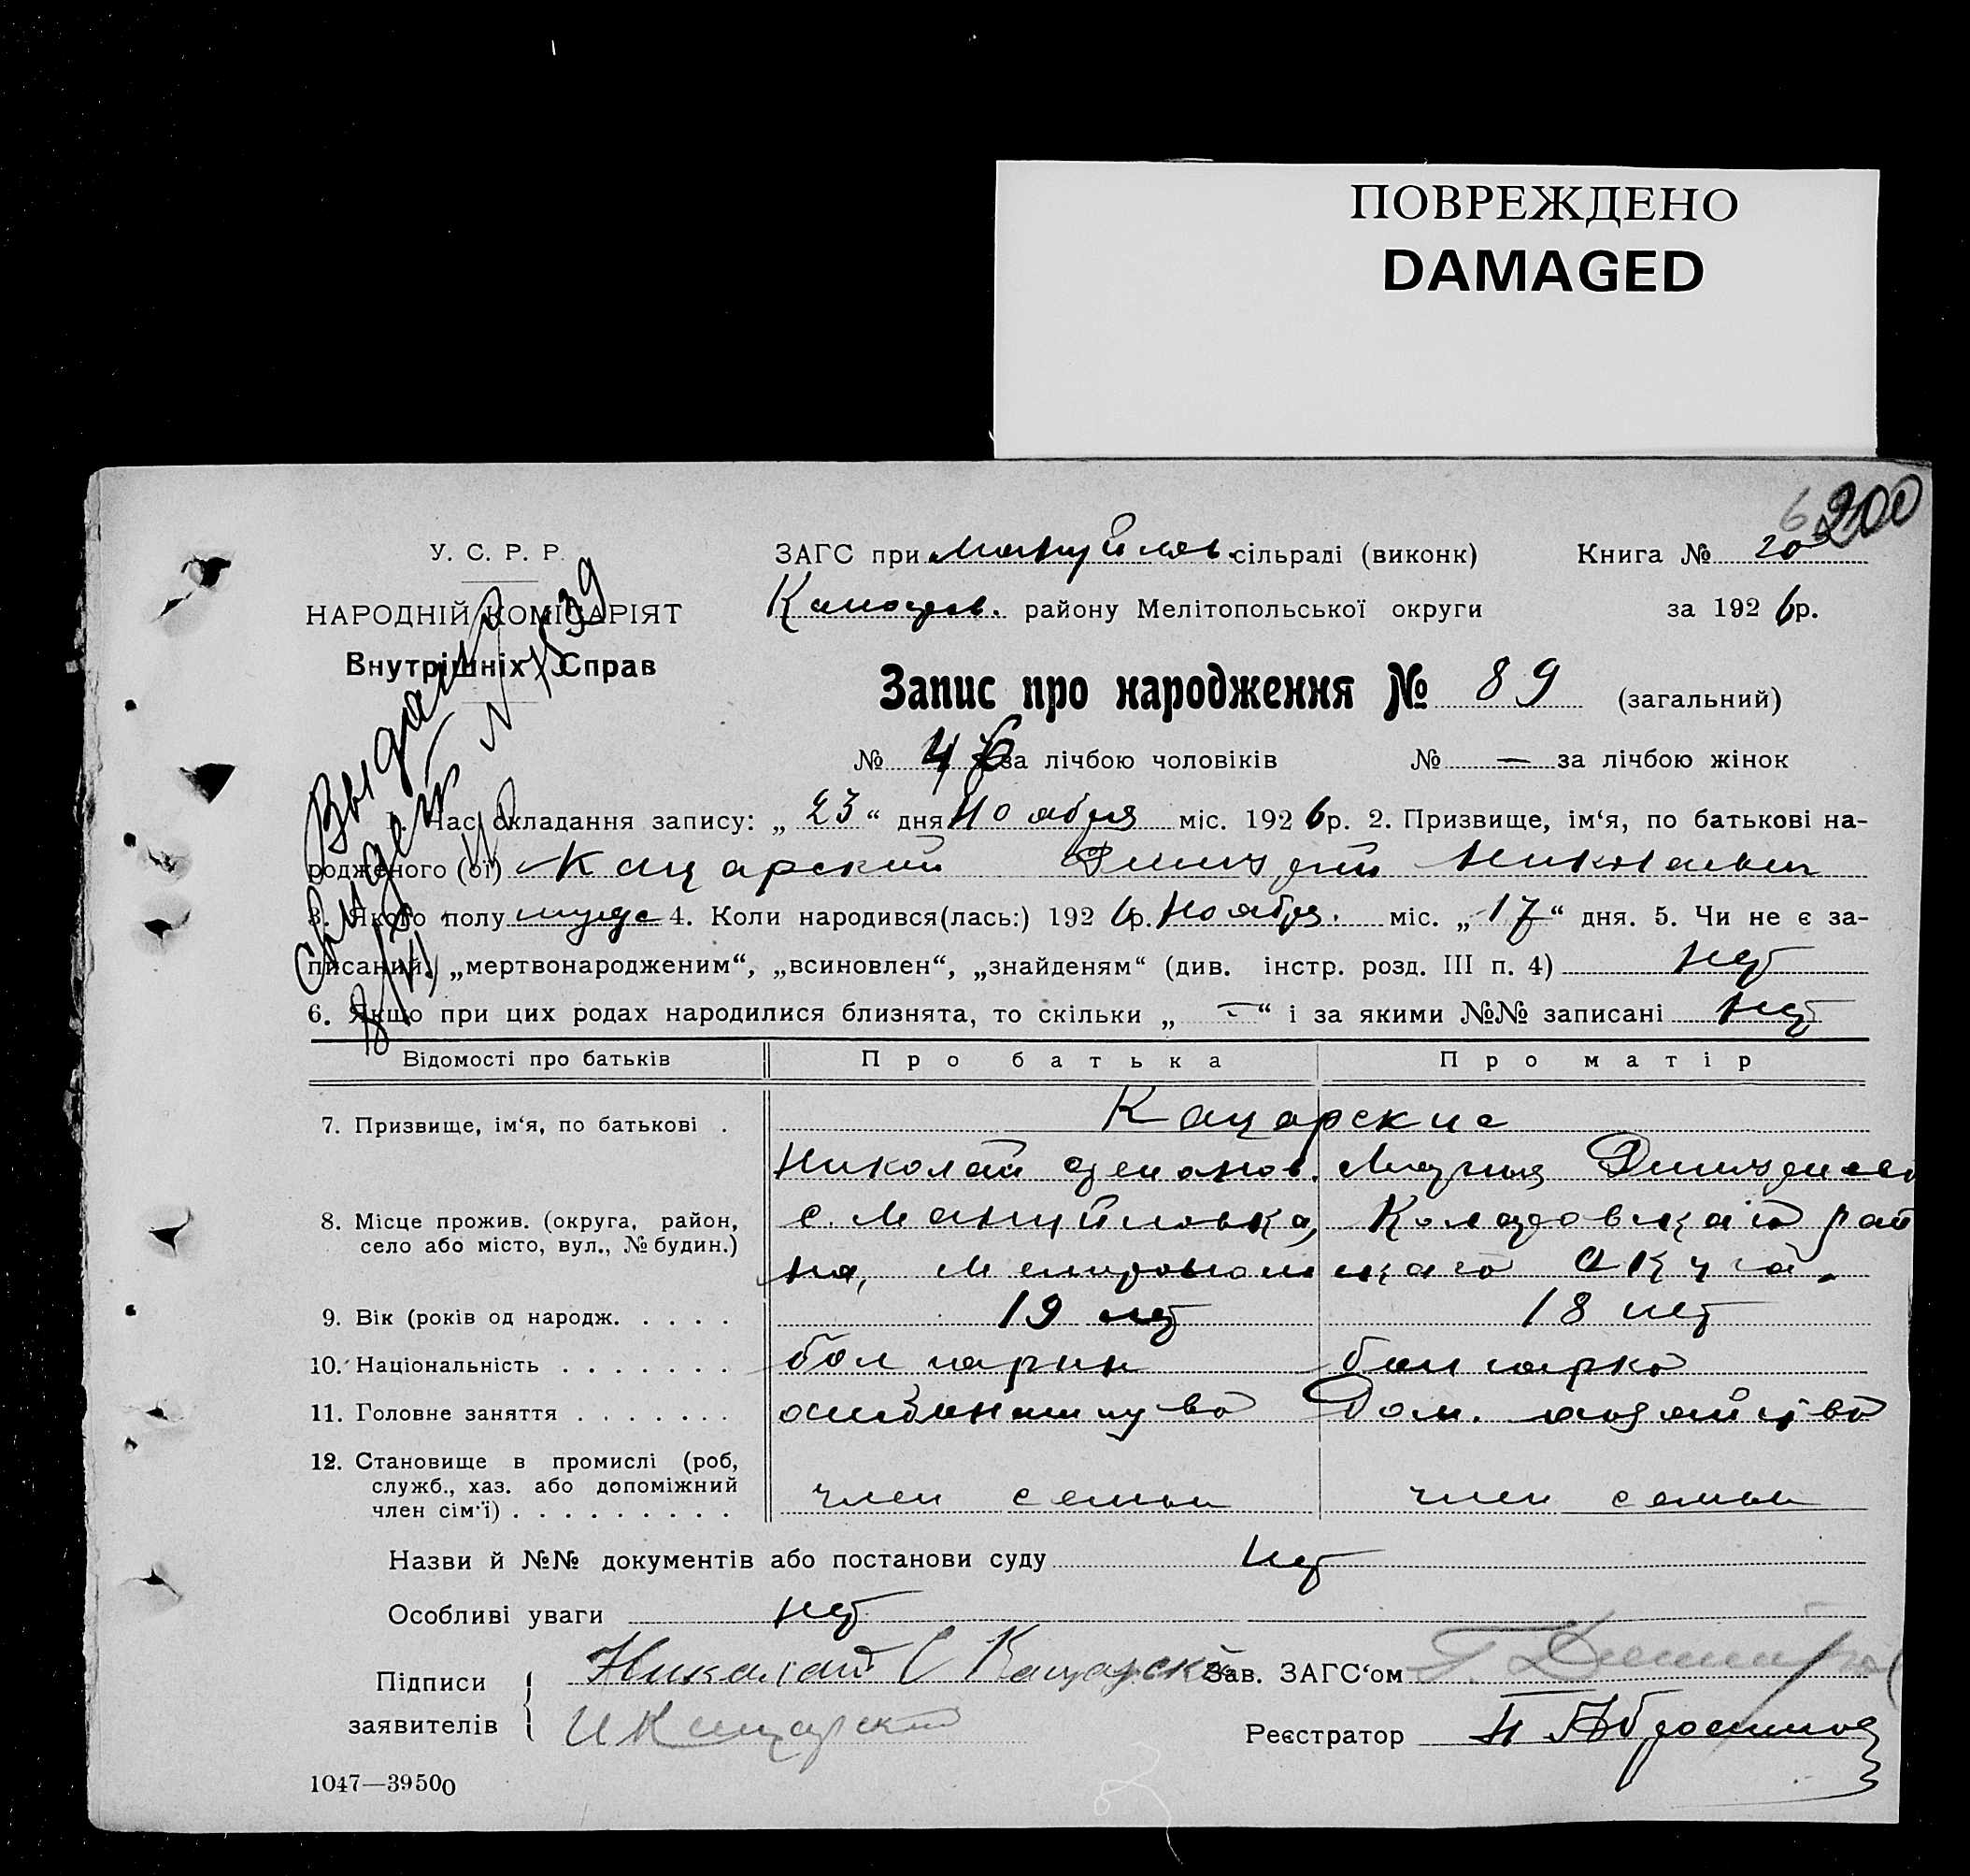 ПОВРЕЖДЕНО
DAMAGED
200
У. С. Р. Р.
НАРОДНІЙ КОМІСАРІЯТ
Внутрішніх Справ
ЗАГС при Мануйлов. сільраді (виконк)
Книга № 20
района Мелітопольської округи
за 1926р.
Запис про народження № 89 (загальний)
№ 46 за лічбою чоловіків № — за лічбою жінок
Выдано
свидет.
1. Час складання запису: „23“ дня Ноября міс. 1926р. 2. Призвище, ім‘я, по батькові на-
родженого (ої) Кацарский Дмитрий Николаевич
3. Якого полу мужс 4. Коли народився(лась:) 1926р. Ноября. міс. „17“ дня. 5. Чи не є за-
писаний „мертвонародженим“, „всиновлен“, „знайденям“ (див. інстр. розд. III п. 4) нет
6. Якщо при цих родах народилися близнята, то скільки „—“ і за якими №№ записані нет
Відомості про батьків Про батька Про матір
7. Призвище, ім‘я, по батькові . Кацарские
Николай Степанов. Мария
8. Місце прожив. (округа, район, с. Мануйловка, Коларовского рай
село або місто, вул., № будин.)
на, Мелитопольского округа.
9. Вік (років од народж. . . . . 19 лет 18 лет
10. Національність . . . . . . . болгарин болгарка
11. Головне заняття . . . . . . . Дом. хозяйство
12. Становище в промислі (роб,
служб., хаз. або допоміжний
член сім‘ї) . . . . . . . . . член семьи член семьи
Назви й №№ документів або постанови суду нет
Особливі уваги нет
Підписи
заявителів
Николай С Кацарский
И Кацарский
Зав. ЗАГС‘ом
Реєстратор
1047—39500